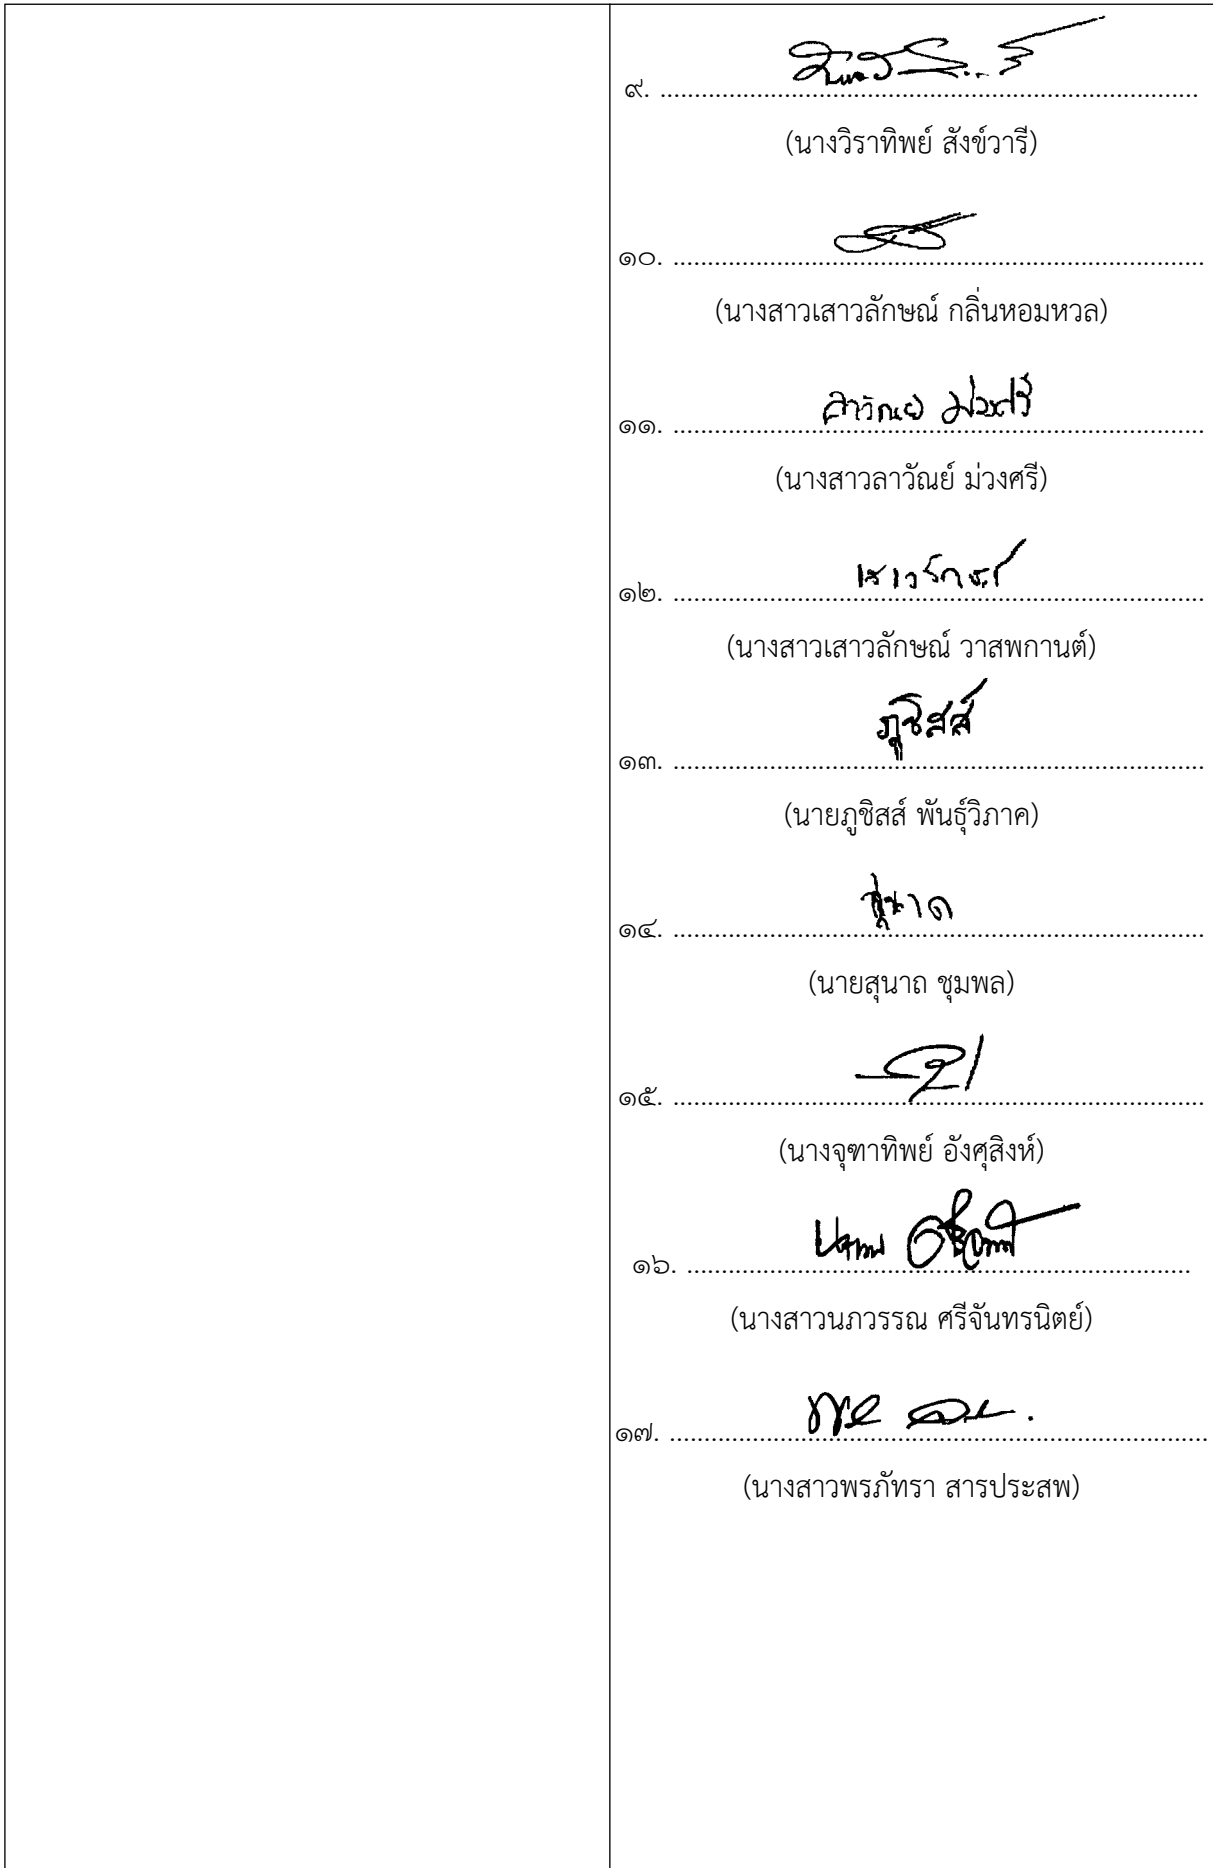 ๙. ................................................................................
(นางวิราทิพย์ สังข์วารี)
๑๐. ................................................................................
(นางสาวเสาวลักษณ์ กลิ่นหอมหวล)
ลาวัณย์ ม่วงศรี
๑๑. ................................................................................
(นางสาวลาวัณย์ ม่วงศรี)
๑๒. ................................................................................
(นางสาวเสาวลักษณ์ วาสพกานต์)
ภูชิสส์
๑๓. ................................................................................
(นายภูชิสส์ พันธุ์วิภาค)
๑๔. ................................................................................
(นายสุนาถ ชุมพล)
๑๕. ................................................................................
(นางจุฑาทิพย์ อังศุสิงห์)
๑๖. ................................................................................
(นางสาวนภวรรณ ศรีจันทรนิตย์)
๑๗. ................................................................................
(นางสาวพรภัทรา สารประสพ)